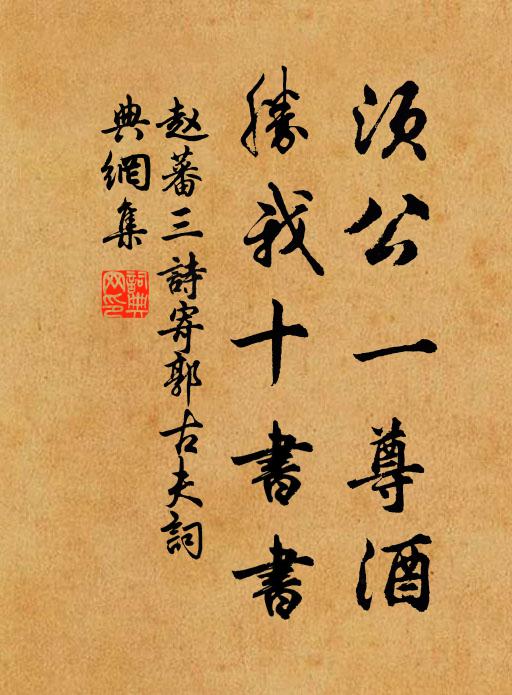 须公一尊酒
勝我十書書
赵蕃三詩寄郭古夫詞
典網集
詞典网印